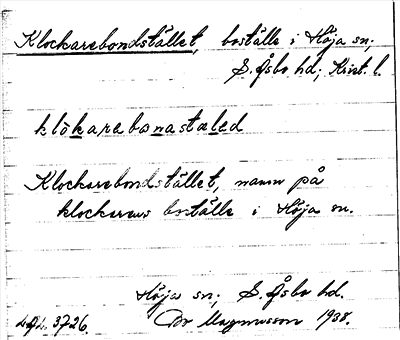 Klockarebondstället, boställe i Höja sn;
S. Åsbo hd; Krist. l.
klåkarebonastaled
Klockarebondstället, namn på
klockarens boställe i Höja sn.
Höja sn; S. Åsbo hd.
3726. Magnusson 1938.